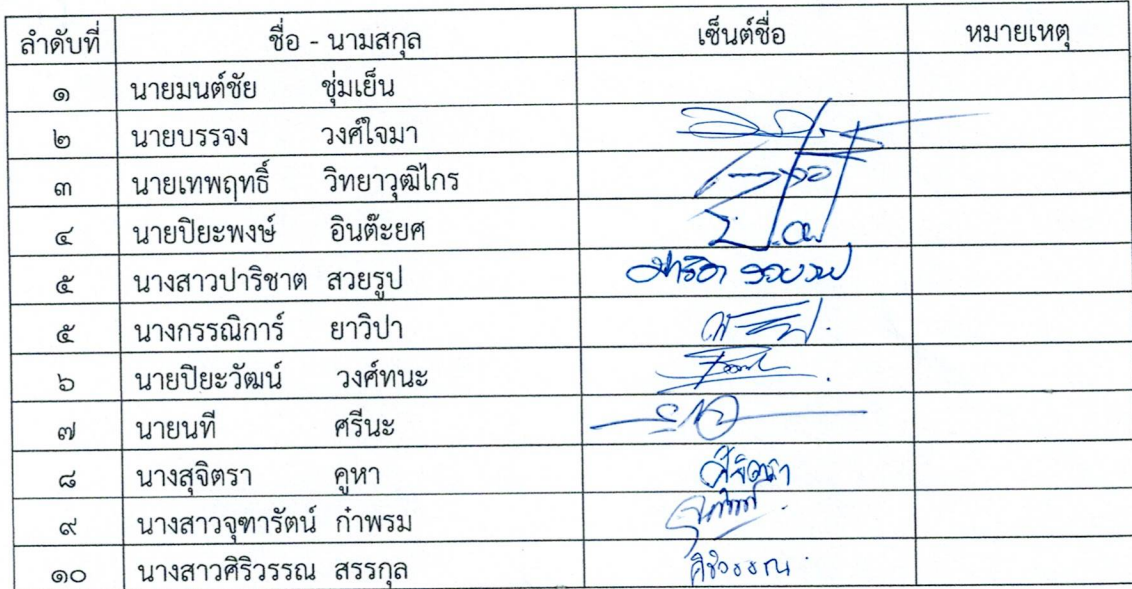 ลำดับที่ ชื่อ - นามสกุล เซ็นต์ชื่อ หมายเหตุ
๑ นายมนต์ชัย ชุ่มเย็น
๒ นายบรรจง วงศ์ใจมา
๓ นายเทพฤทธิ์ วิทยาวุฒิไกร
๔ นายปิยะพงษ์ อินต๊ะยศ
๕ นางสาวปาริชาต สวยรูป
๕ นางกรรณิการ์ ยาวิปา
๖ นายปิยะวัฒน์ วงศ์ทนะ
๗ นายนที ศรีนะ
๘ นางสุจิตรา คูหา
๙ นางสาวจุฑารัตน์ ก๋าพรม
๑๐ นางสาวศิริวรรณ สรรกุล ศิริวรรณ